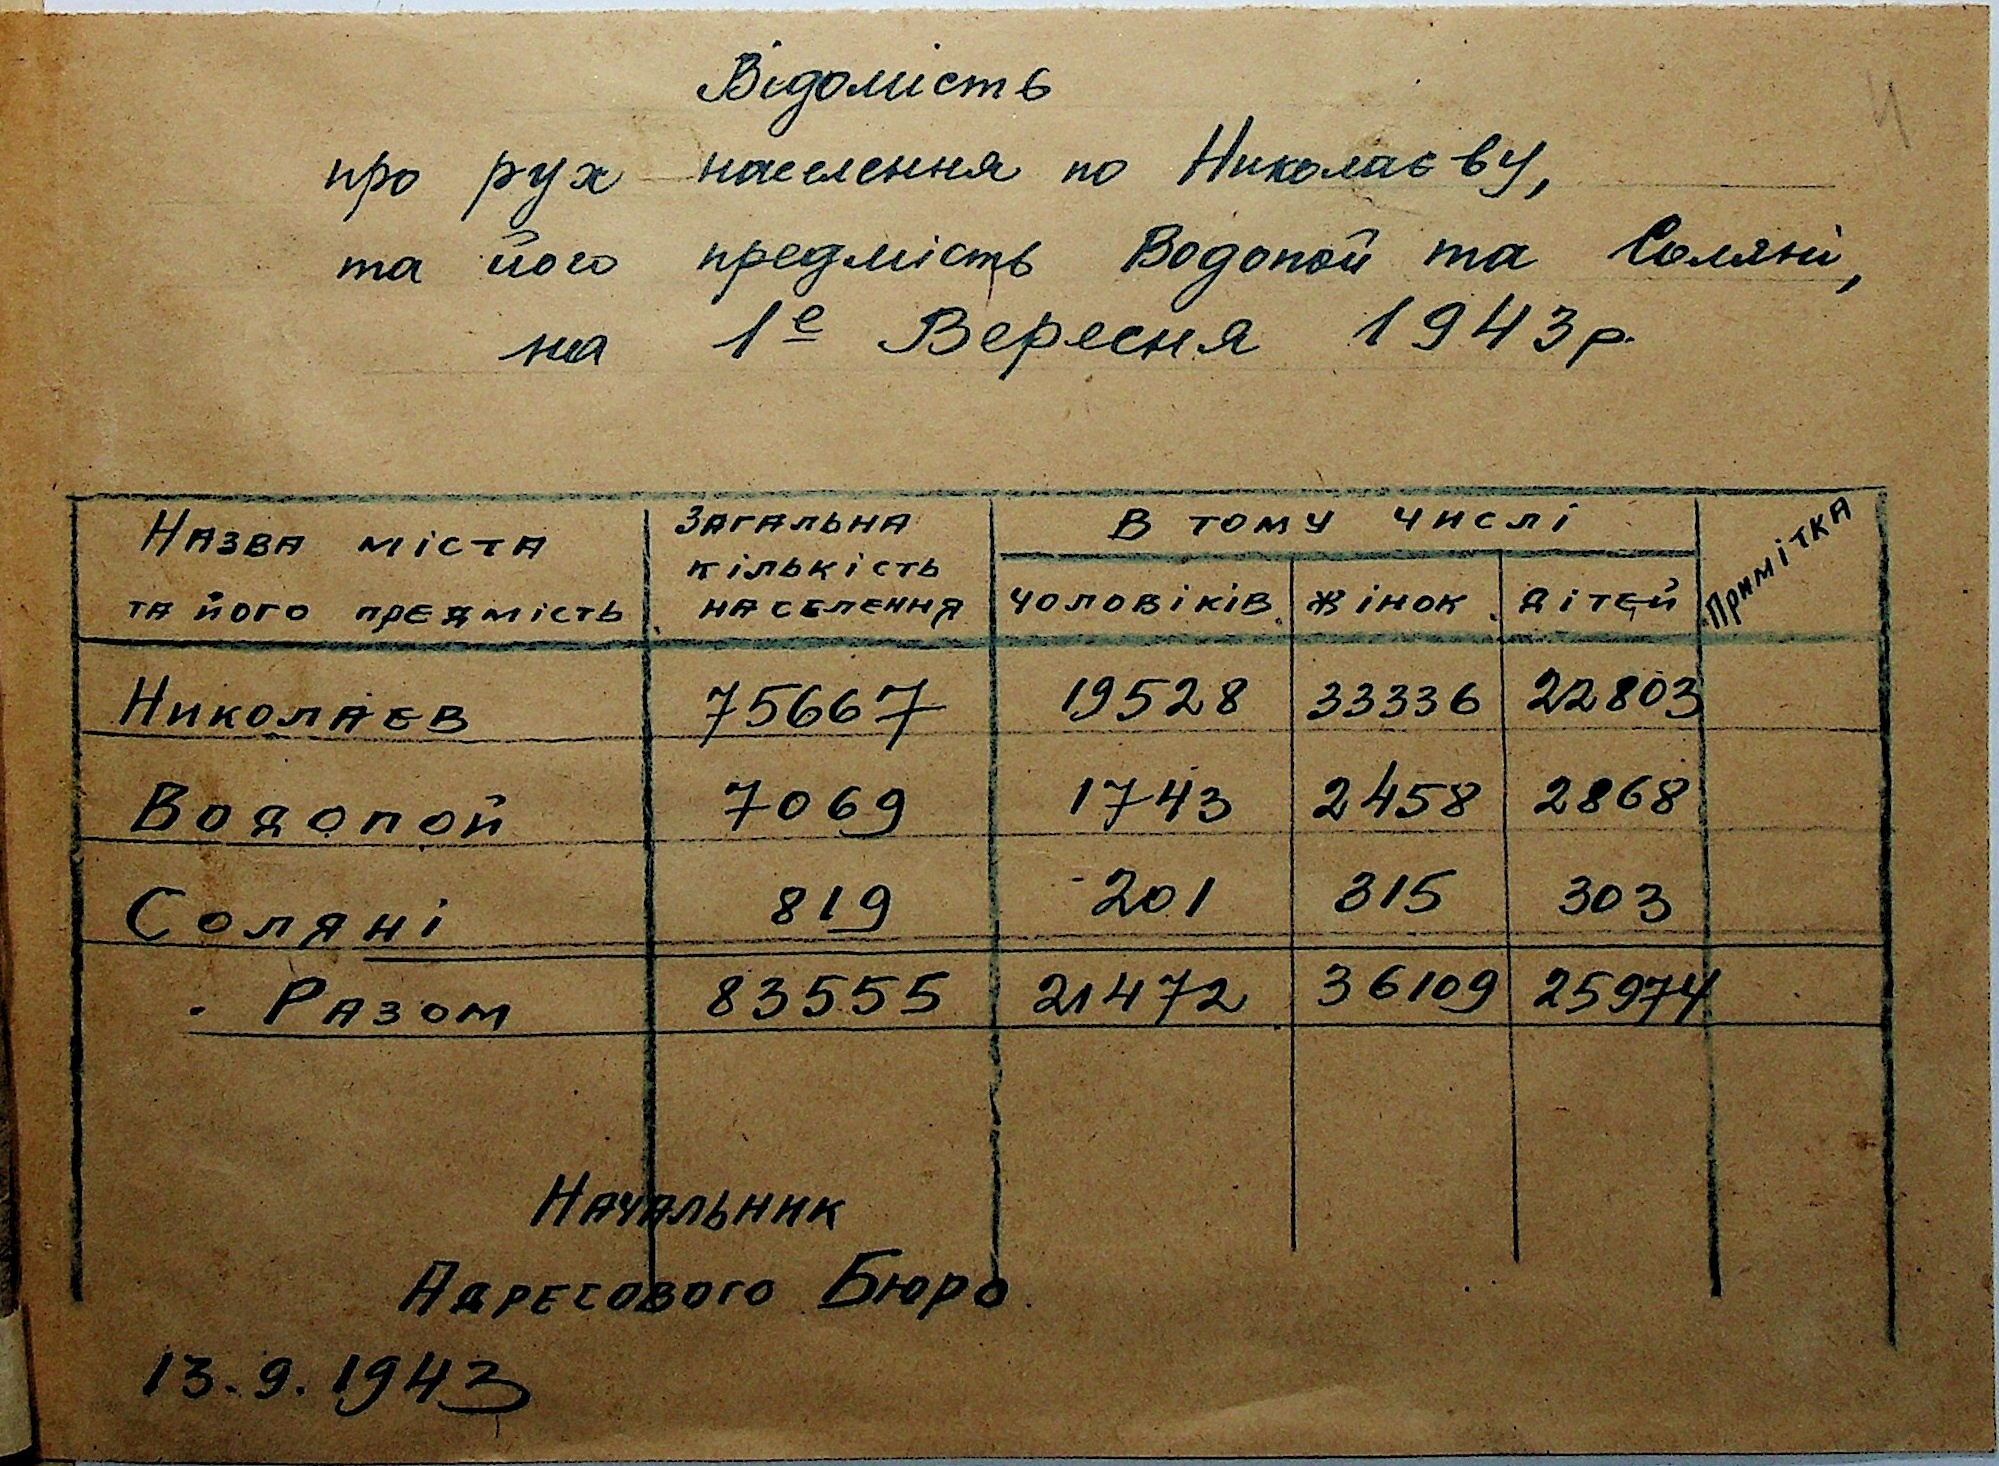 Відомість
про рух населення по Николаєву,
та його предмість Водопой та Соляні,
на 1е Вересня 1943 р.
Назва міста та його предмість
Загальна кількість населення
В тому числі
чоловіків. жінок. дітей
Примітка
Николаєв 75667 19528 33336 22803
Водопой 7069 1743 2458 2868
Соляні 819 201 315 303
Разом 83555 21472 36109 25974
Начальник
Адресового Бюро.
13.9.1943